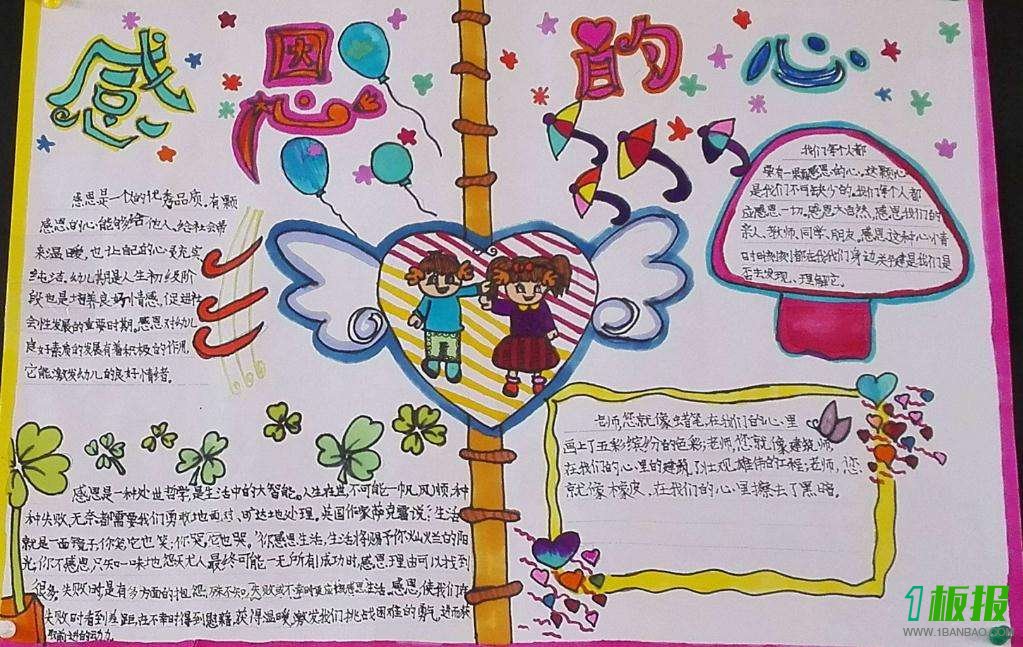 感恩的心
感恩是一个的优秀品质。有颗
感恩的心,能够给他人、给社会带
来温暖,也让自己的心灵充实
纯洁。幼儿期是人生初级阶
段也是培养良好情感、促进社
会性发展的重要时期。感恩对幼儿
良好素质的发展有着积极的作用。
它能激发幼儿的良好情绪。
我们每个人都
要有一颗感恩的心。这颗心
是我们不可缺少的。我们每个人都
应感恩一切。感恩大自然、感恩我们的
亲人、教师、同学、朋友。感恩这种心情
时时刻刻都在我们身边关键是我们是
否去发现、理解它。
老师,您就像蜡笔,在我们的心里
画上了五彩缤纷的色彩;老师,您就像建筑师,
在我们的心里的建筑了壮观、雄伟的工程;老师,您
就像橡皮,在我们的心里擦去了黑暗。
感恩是一种处世哲学,是生活中的大智能。人生在世,不可能一帆风顺,种
种失败、无奈都需要我们勇敢地面对、旷达地处理。英国作家萨克雷说:"生活
就是一面镜子,你笑,它也笑;你哭,它也哭。"你感恩生活,生活将赐予你灿烂的阳
光;你不感恩,只知一味地怨天尤人,最终可能一无所有!成功时,感恩理由可以找到
很多;失败时
失败时看到差距,在不幸时得到慰藉、获得温暖,激发我们挑战困难的勇气,进而获
取前进的动力
1板报
WWW.1BANBAO.COM